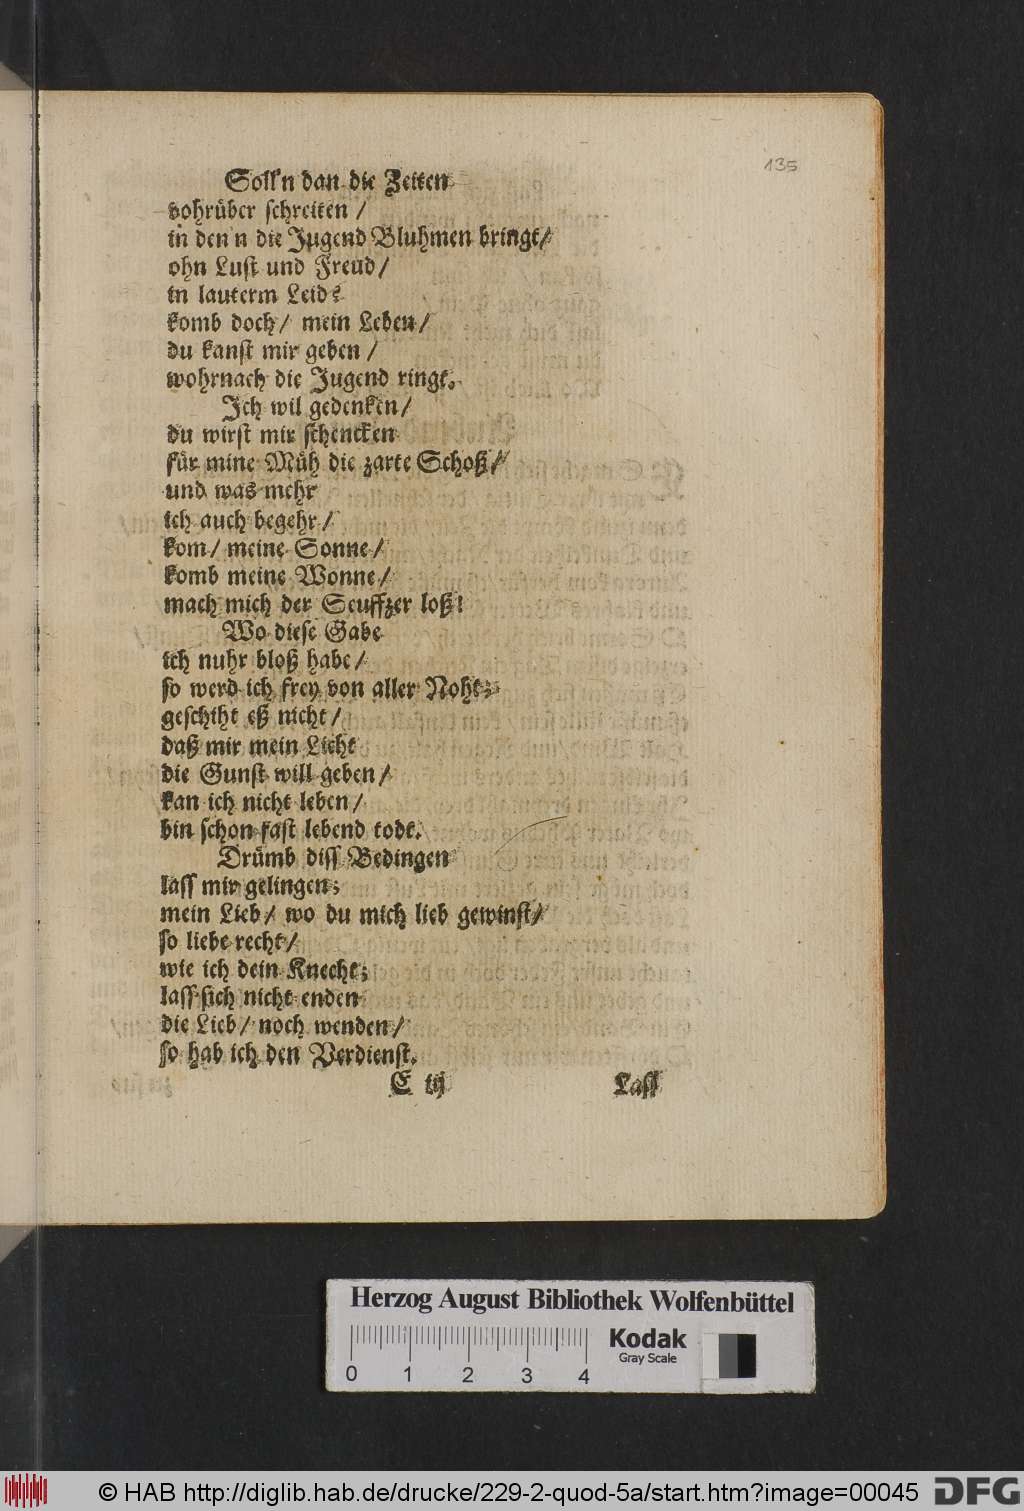 135
Solln dan die Zeiten
vohrüber schreiten /
in den'n die Jugend Bluhmen bringt/
ohn Lust und Freud/
in lauterm Leid?
komb doch/ mein Leben/
du kanst mir geben /
wohrnach die Jugend ringt.
Ich wil gedencken/
du wirst mir schencken
für mine Müh die zarte Schoß/
und was mehr
ich auch begehr/
kom/ meine Sonne/
komb meine Wonne/
mach mich der Seuffzer loß!
Wo diese Gabe
ich nuhr bloß habe/
so werd ich frey von aller Noht;
geschiht eß nicht/
daß mir mein Licht
die Gunst will geben/
kan ich nicht leben/
bin schon fast lebend todt.
Drümb diss Bedingen
lass mir gelingen;
mein Lieb/ wo du mich lieb gewinst/
so liebe recht/
wie ich dein Knecht;
lass sich nicht enden
die Lieb/ noch wenden/
so hab ich den Verdienst.
E iij Lass
Herzog August Bibliothek Wolfenbüttel
Kodak
Gray Scale
0 1 2 3 4
© HAB http://diglib.hab.de/drucke/229-2-quod-5a/start.htm?image=00045 DFG